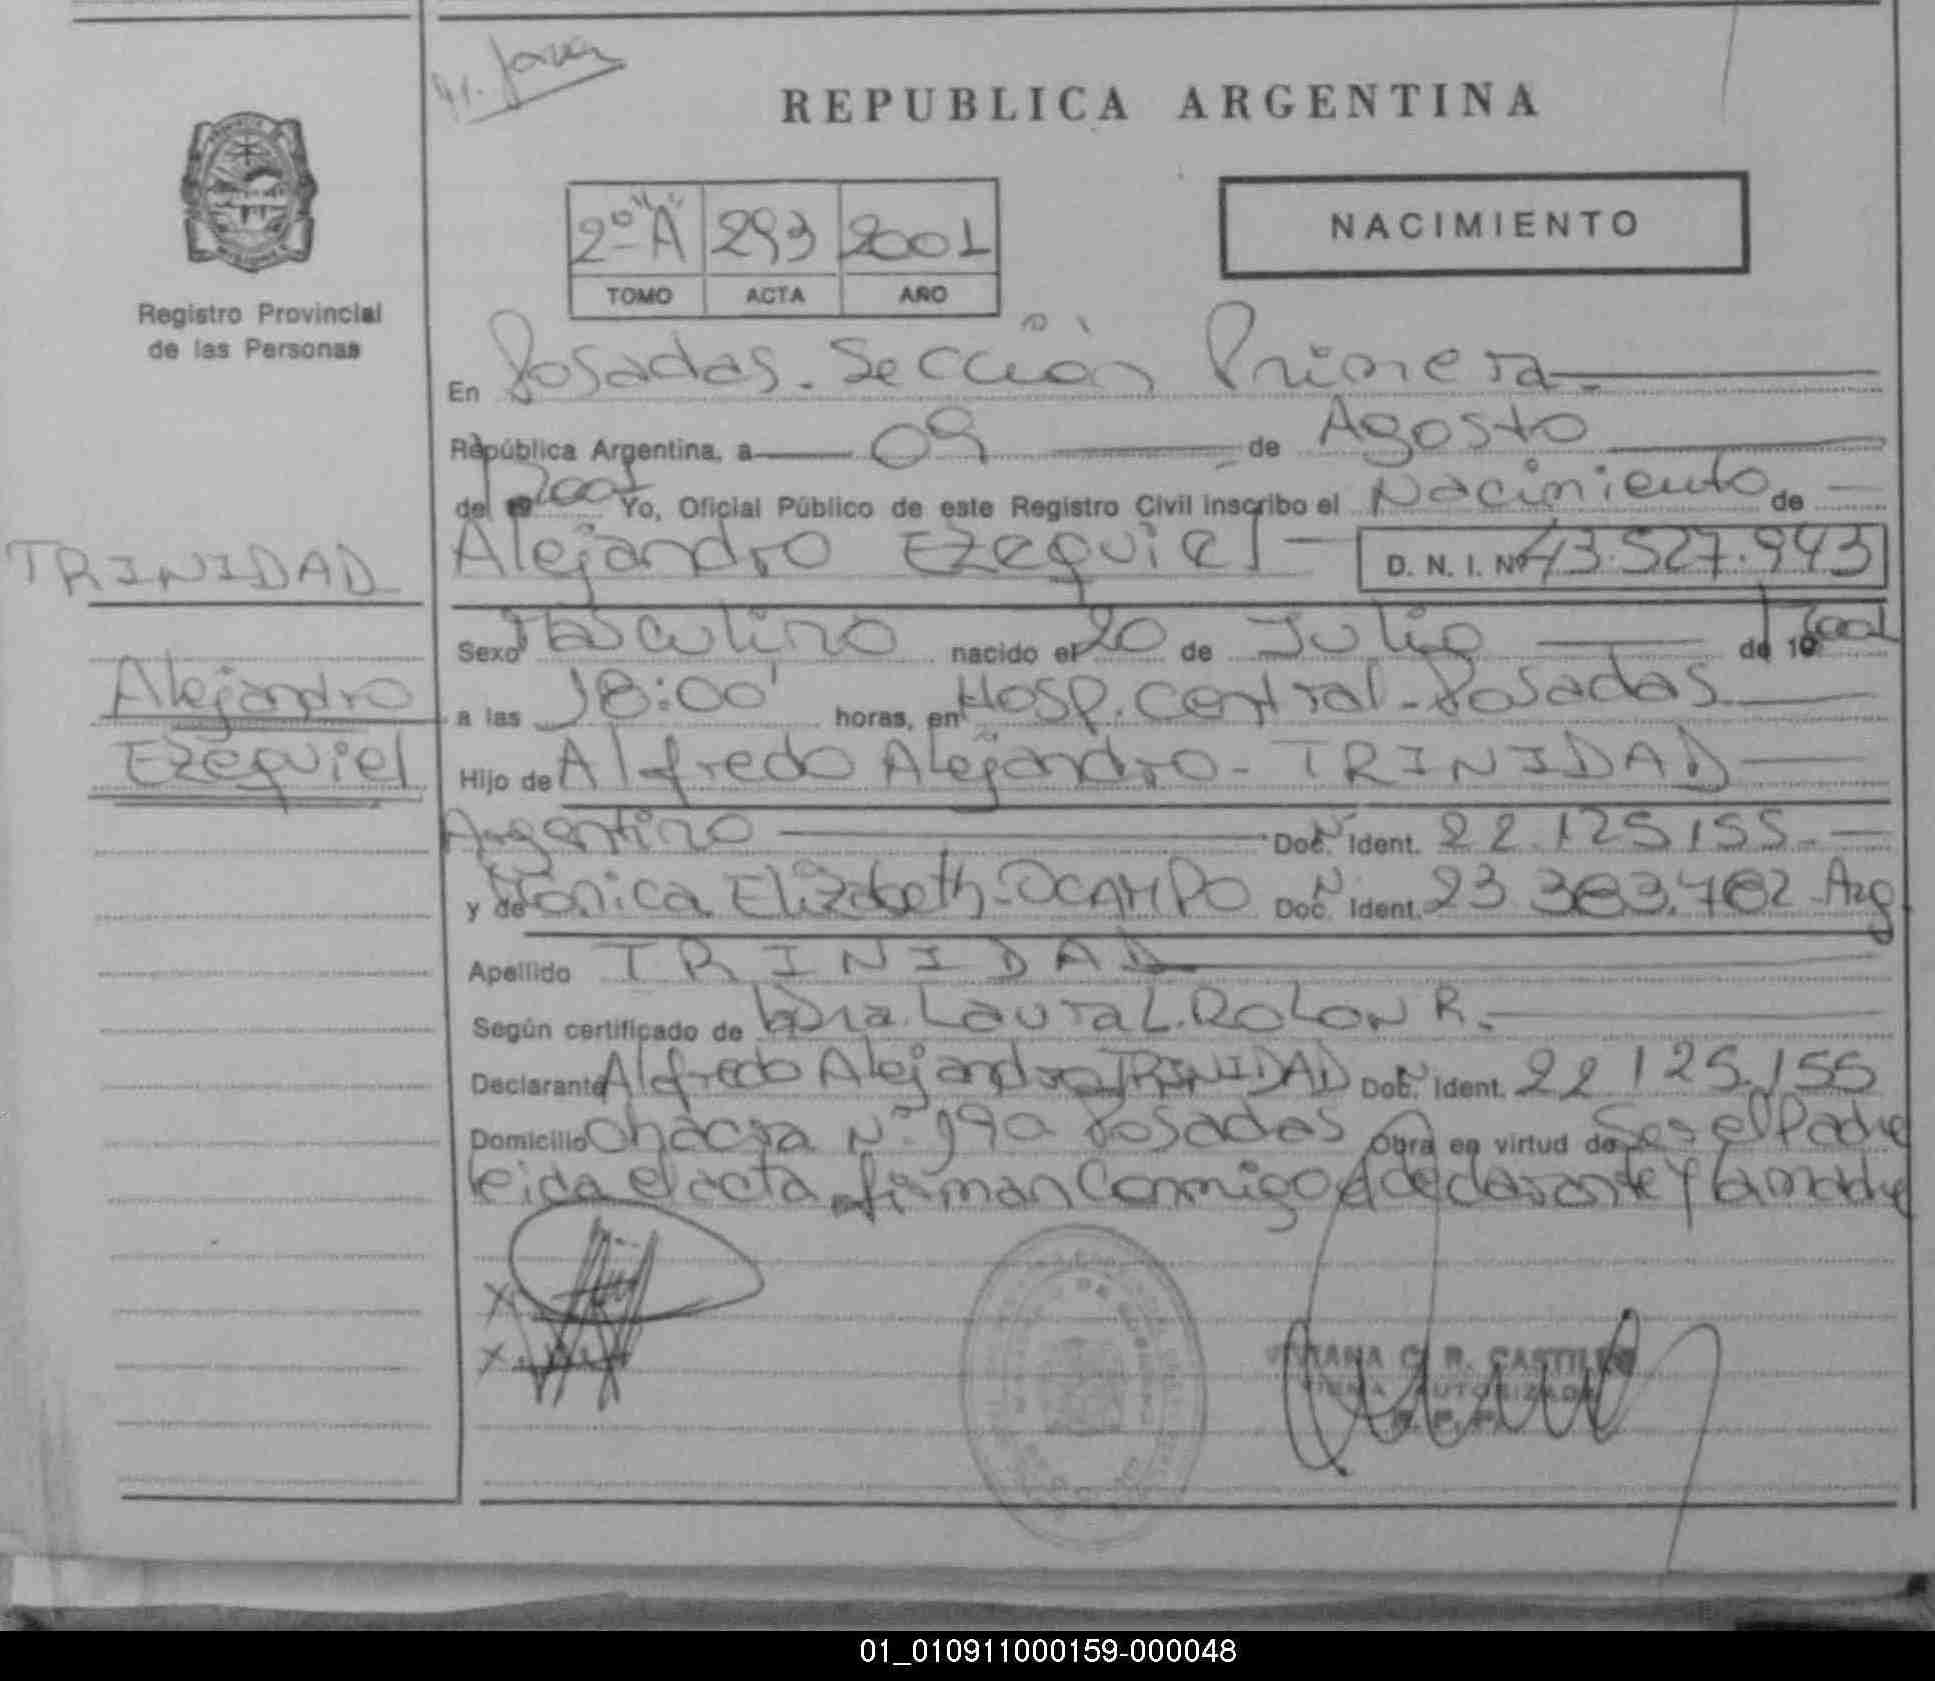 REPUBLICA ARGENTINA
2º "A" 293 2001
TOMO ACTA AÑO
NACIMIENTO
Registro Provincial
de las Personas
En Posadas. Sección Primera
República Argentina, a 09 de Agosto
del 2001 Yo, Oficial Público de este Registro Civil inscribo el Nacimiento de
Alejandro Ezequiel D. N. I. Nº 43.527.943
TRINIDAD
Alejandro
Ezequiel
Sexo Masculino nacido el 20 de Julio del 2001
a las 18:00' horas, en Hosp. Central - Posadas
Hijo de Alfredo Alejandro - TRINIDAD
Argentino Doc. Ident. 22.125.155.
y de Mónica Elizabeth - OCAMPO Doc. Ident. 23.383.782 - Arg
Apellido TRINIDAD
Según certificado de la Dra. Laura L. ROLON R.
Declarante Alfredo Alejandro TRINIDAD Doc. Ident. 22.125.155
Domicilio Chacra Nº 190 Posadas Obra en virtud de Ser el Padre
leída el acta firman Conmigo el declarante y la madre
X
X
C. R. CASTILLO
FIRMA AUTORIZADA
R. P. P.
01_010911000159-000048